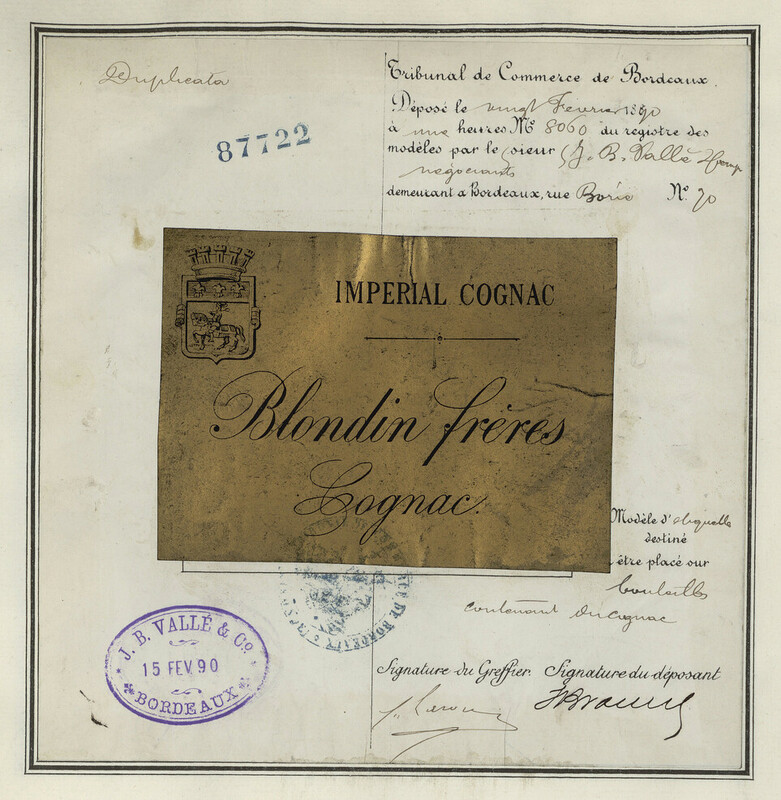 Duplicata
87722
Tribunal de Commerce de Bordeaux
Déposé le vingt Février 1890
à une heures No 8060 du registre des
modèles par le sieur J. B. Vallé & Comp
négociants
demeurant à Bordeaux, rue Borie No 70
IMPERIAL COGNAC
Blondin frères
Cognac.
Modèle d'étiquette
destiné
être placé sur
bouteilles
contenant du cognac
DE BORDEAUX
J. B. VALLÉ & Co.
15 FEV 90
BORDEAUX
Signature du Greffier. Signature du déposant